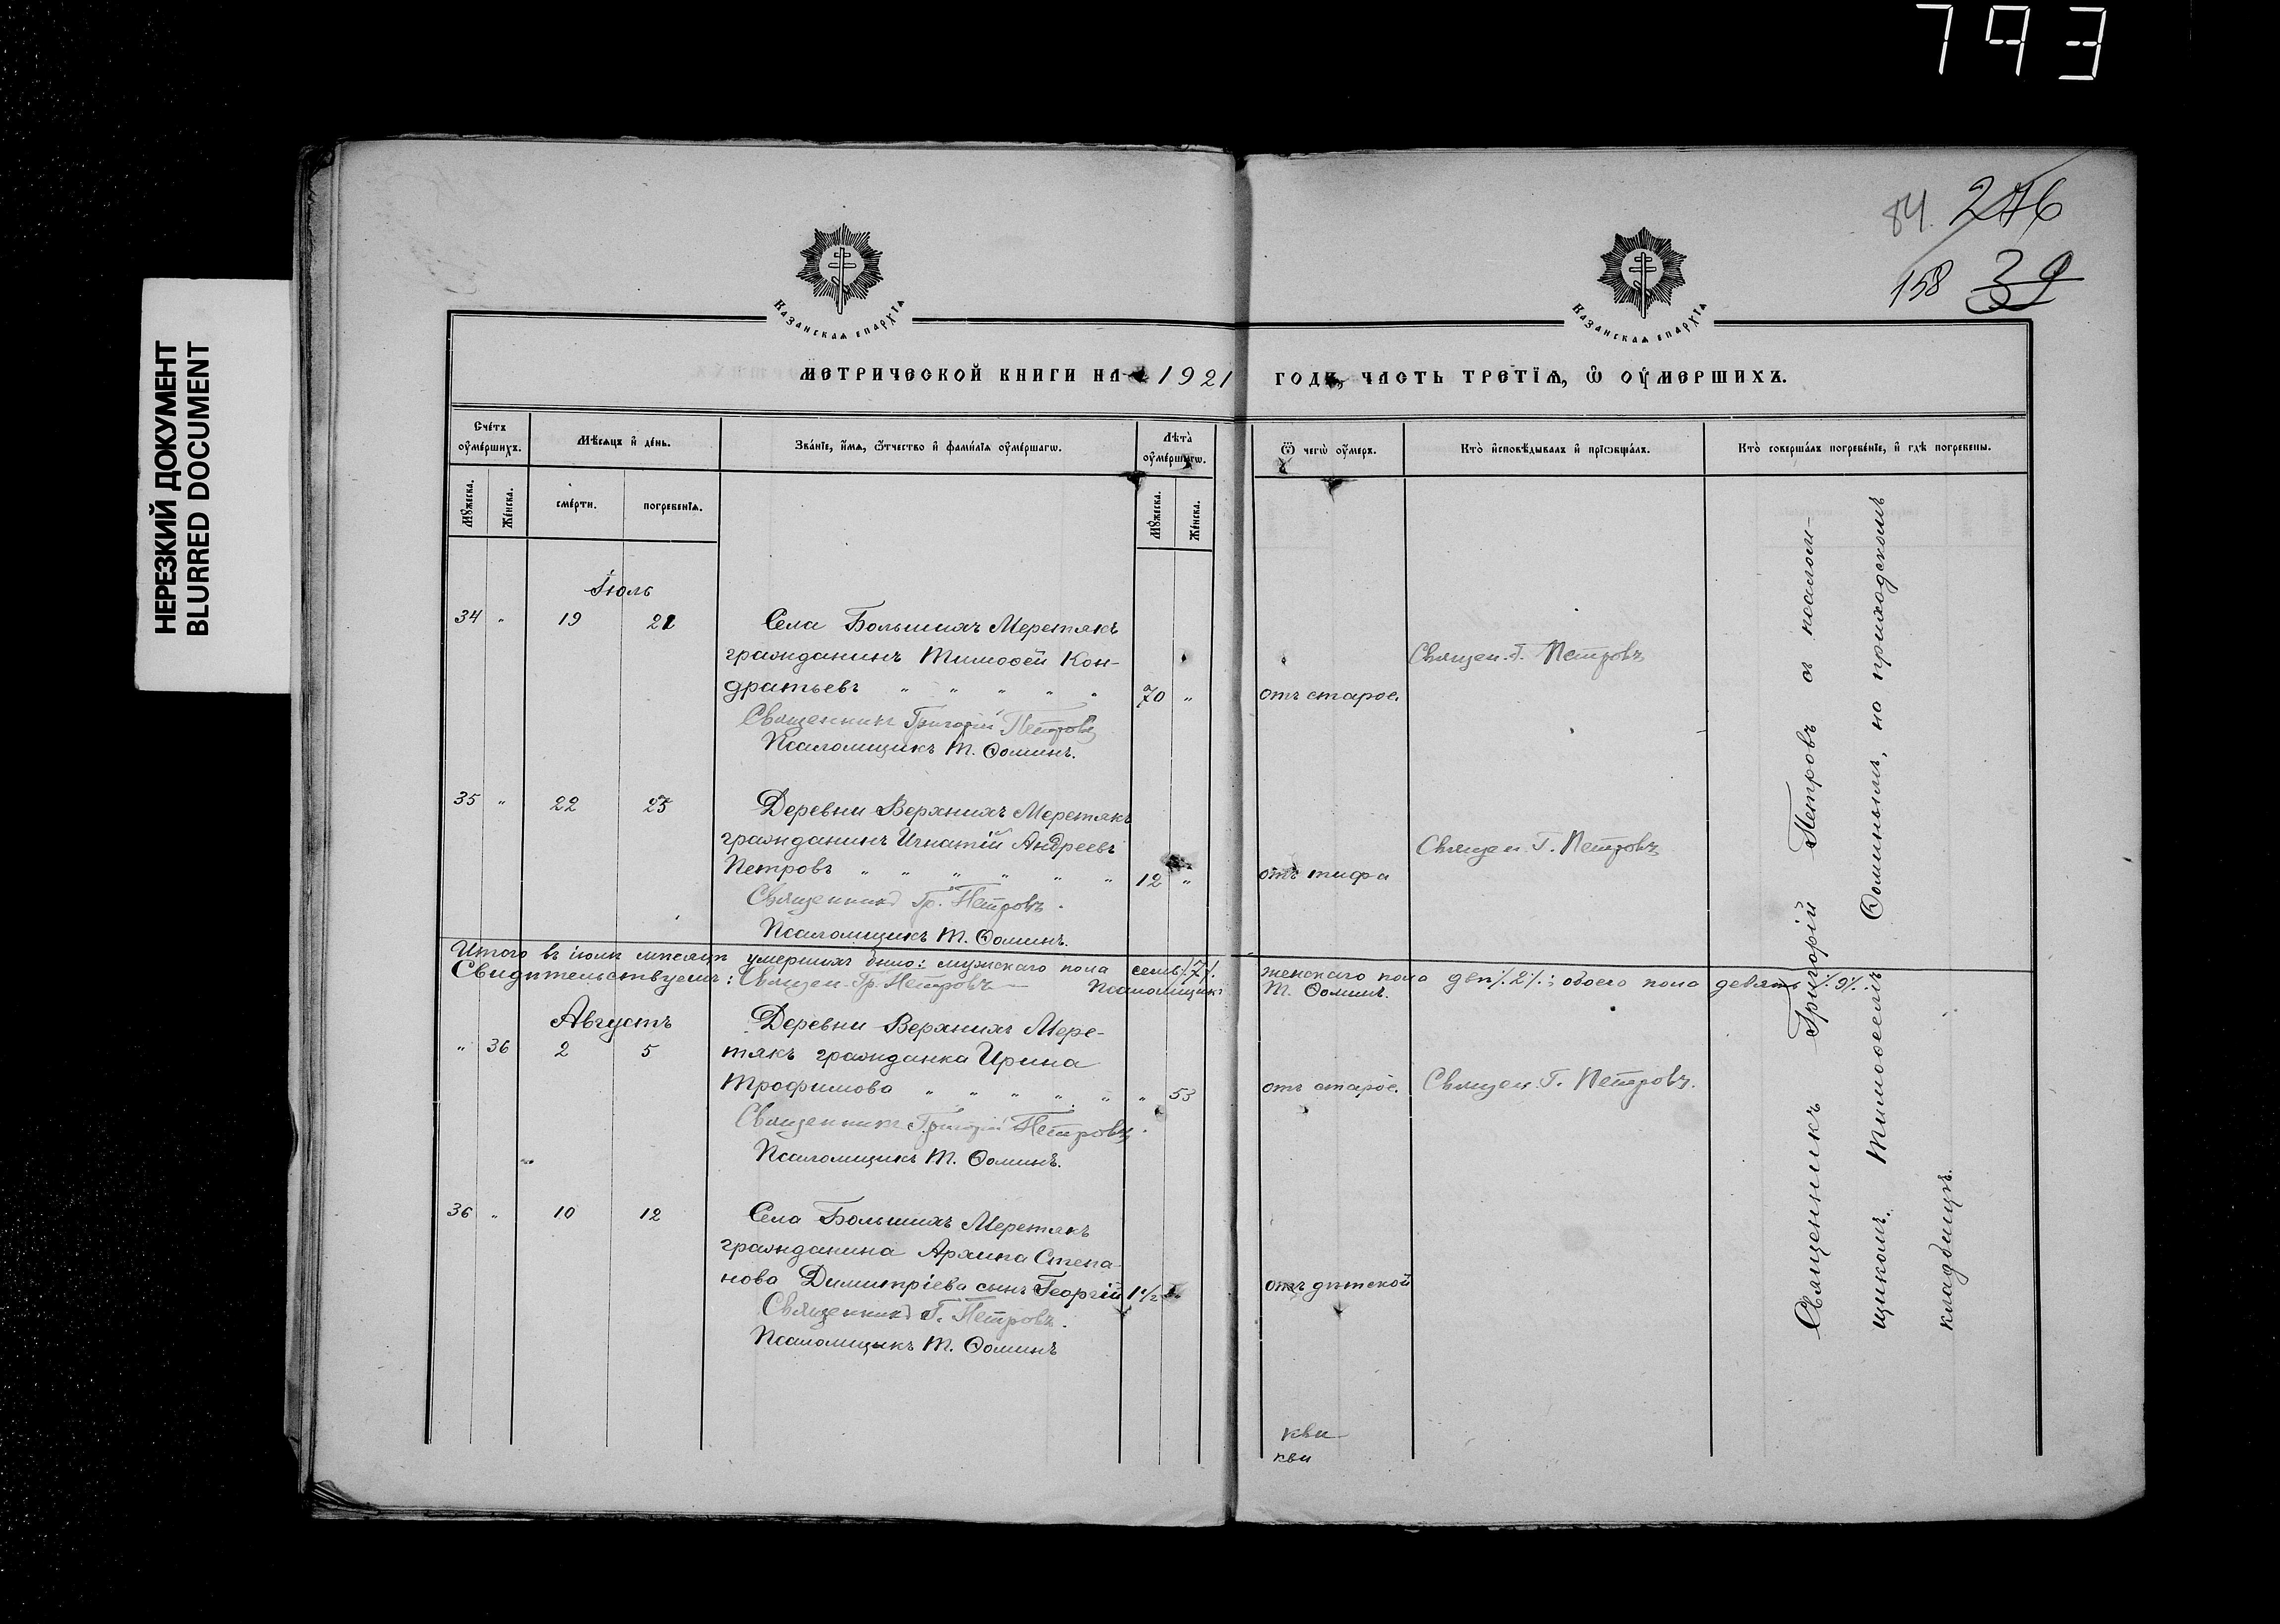 793
НЕРЕЗКИЙ ДОКУМЕНТ
BLURRED DOCUMENT
84. 246
158 39
КАЗАНСКАЯ ЕПАРХІЯ
КАЗАНСКАЯ ЕПАРХІЯ
МЕТРИЧЕСКОЙ КНИГИ НА 1921 ГОДЪ, ЧАСТЬ ТРЕТІЯ, Ѡ ОУМЕРШИХЪ.
Счетъ оумершихъ.
Мѣсяцъ и день.
Званіе, имя, ѿчество и фамилія оумершагѡ.
Лѣта оумершагѡ.
Ѿ чегѡ оумеръ.
Кто исповѣдывалъ и пріѡбщалъ.
Кто совершалъ погребеніе, и гдѣ погребены.
Мужеска.
Женска.
смерти.
погребенія.
Мужеска.
Женска.
Іюль
34 " 19 21 Села Большихъ Меретякъ
гражданинъ Тимоѳей Кон-
дратьевъ " " " " " 70 " отъ старос. Священ. Г. Петровъ
Священникъ Григорій Петровъ
Псаломщикъ Т. Ѳоминъ.
35 " 22 25 Деревни Верхнихъ Меретякъ
гражданинъ Игнатій Андреевъ
Петровъ " " " " " " 12 " отъ тифа Священ. Г. Петровъ
Священникъ Гр. Петровъ.
Псаломщикъ Т. Ѳоминъ.
Итого въ іюлѣ мѣсяцѣ умершихъ было: мужскаго пола семь /.7/. женскаго пола двѣ /.2/.; обоего пола девять /.9/.
Свидѣтельствуемъ: Священ. Гр. Петровъ Псаломщикъ Т. Ѳоминъ.
Августъ
" 36 2 5 Деревни Верхнихъ Мере-
тякъ гражданка Ирина
Трофимова " " " " " " 53 отъ старос. Священ. Г. Петровъ.
Священникъ Григорій Петровъ.
Псаломщикъ Т. Ѳоминъ.
36 " 10 12 Села Большихъ Меретякъ
гражданина Архипа Степа-
нова Димитріева сынъ Георгій 1 1/2 отъ дѣтской
Священникъ Г. Петровъ.
Псаломщикъ Т. Ѳоминъ
Священникъ Григорій Петровъ съ псалом-
щикомъ Тимоѳеемъ Ѳоминымъ, на приходскомъ
кладбищѣ.